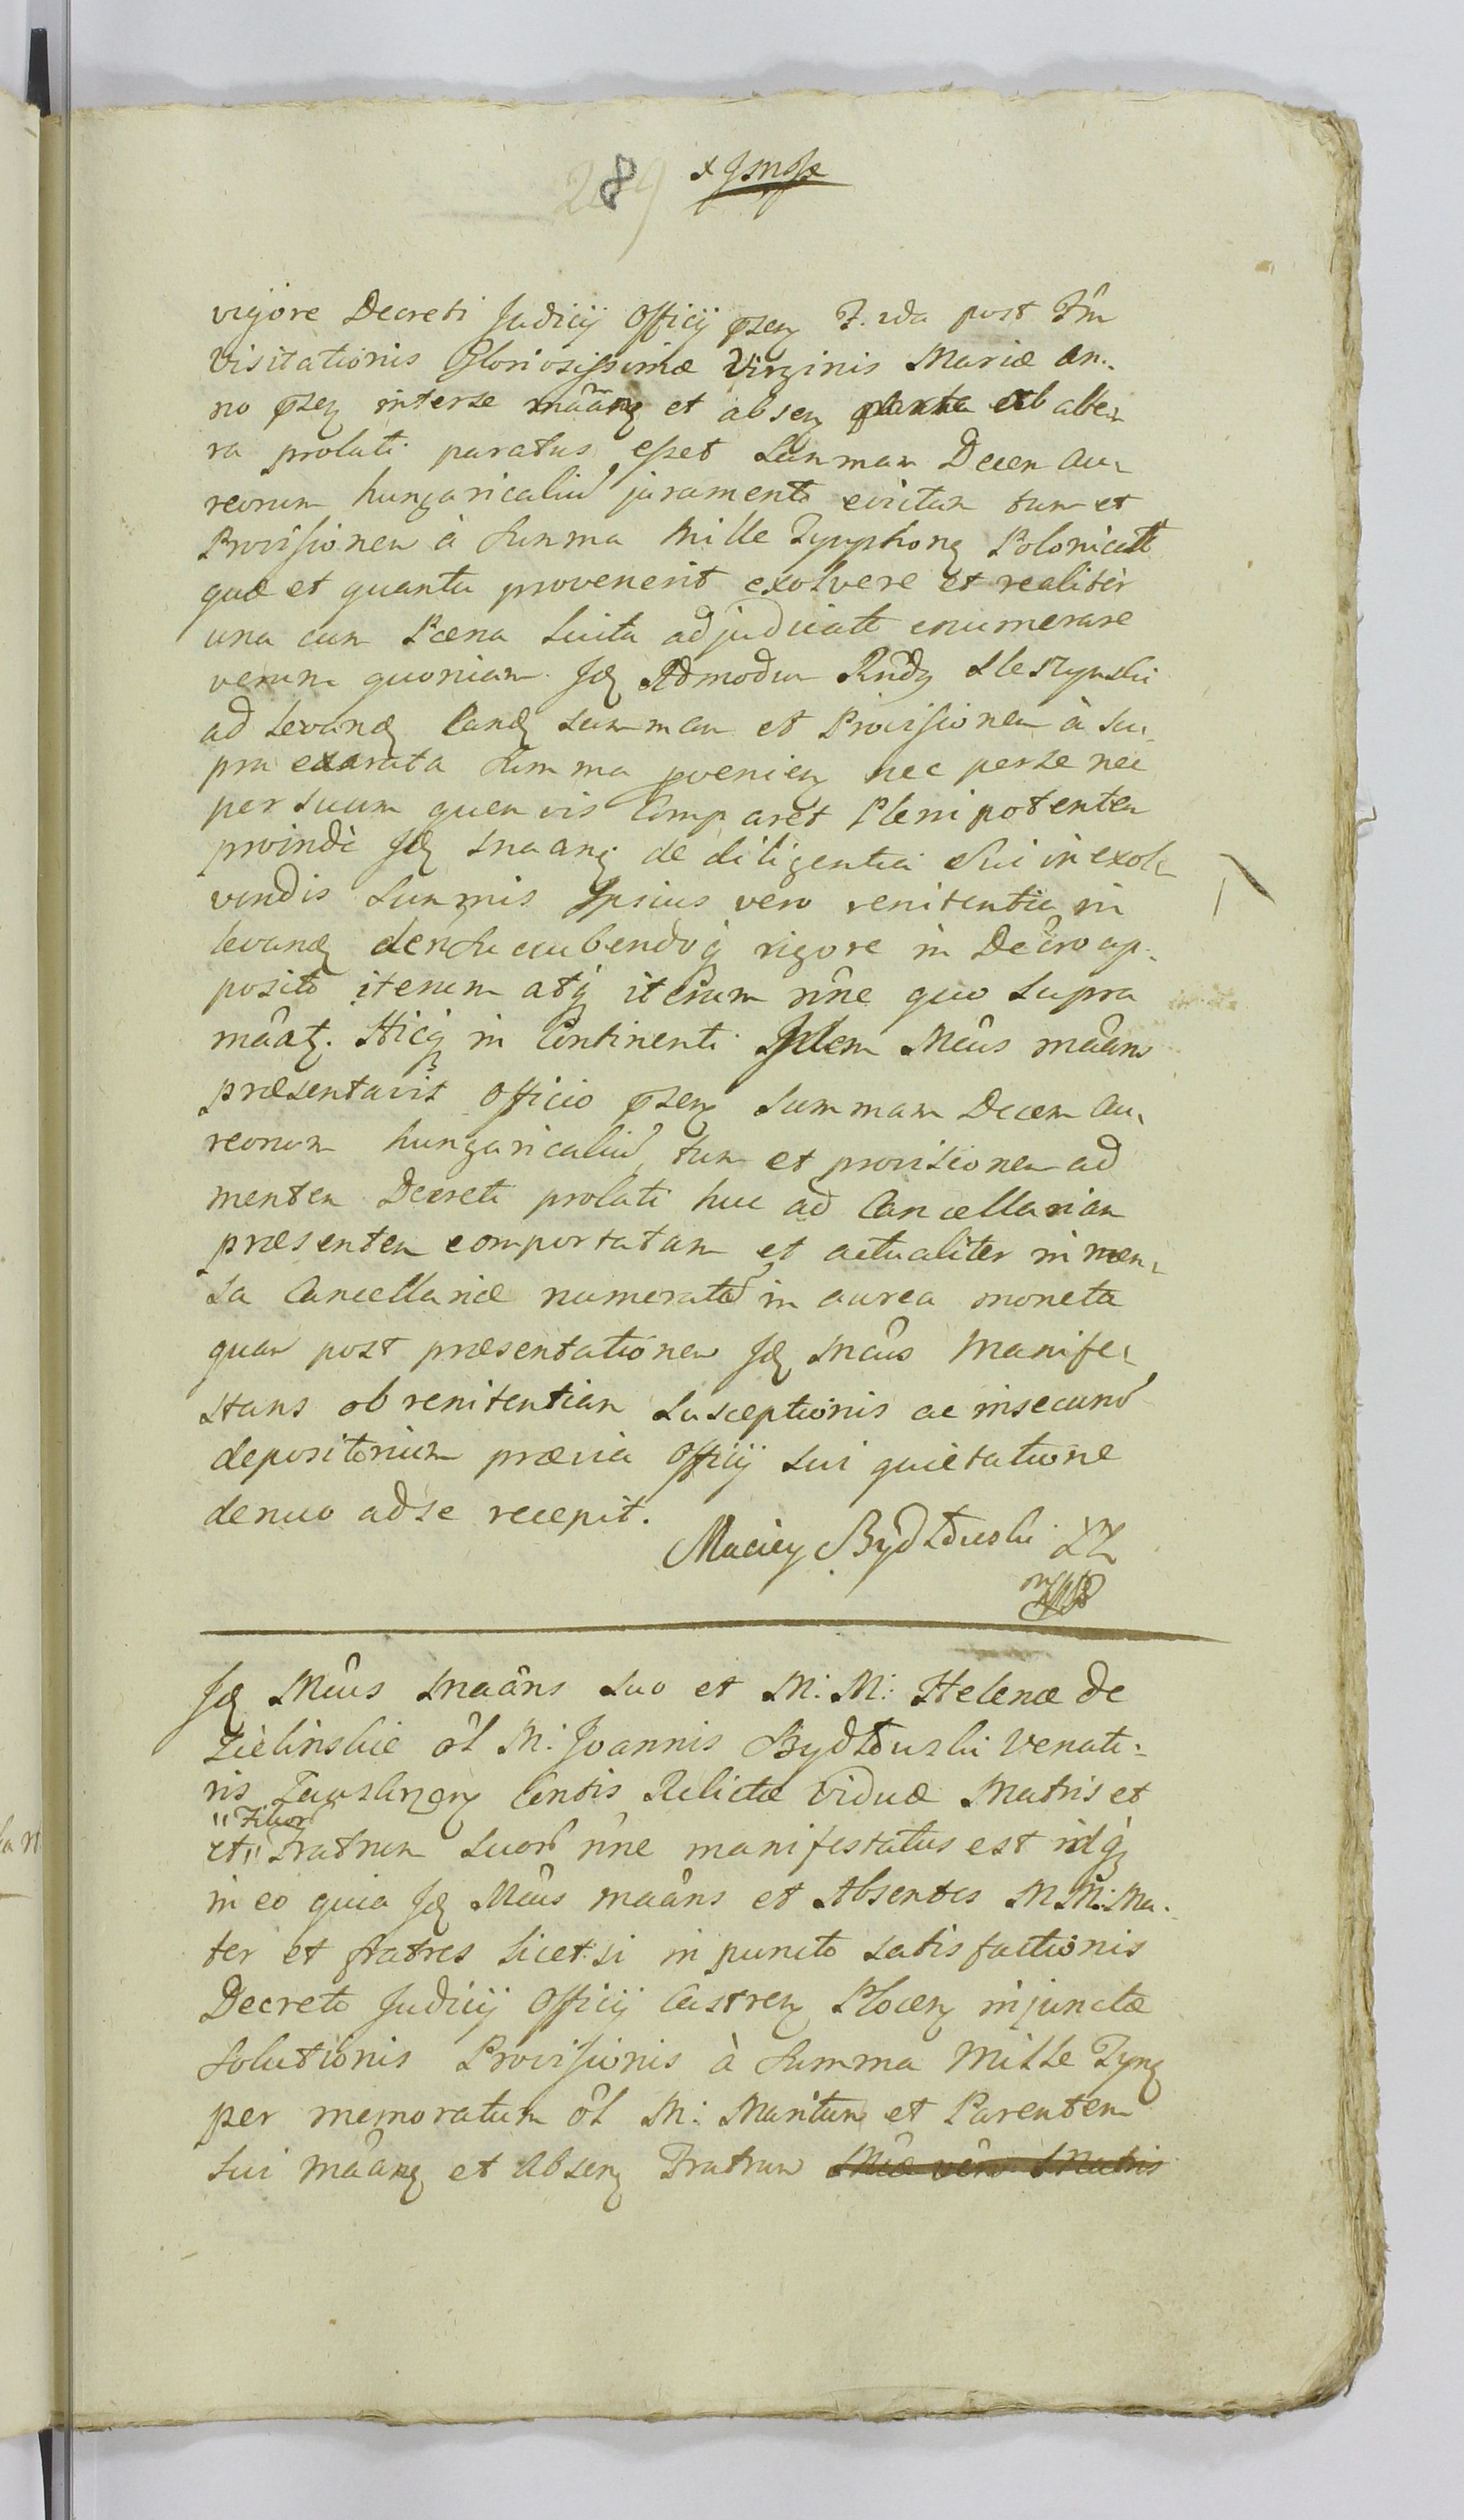 289
vigore Decreti Judicij Officij psen F. 2da post Fm
Visitationis Gloriosissimæ Virginis Mariæ an:
no psen interse maang et absen parte ab alte
ra prolati paratus esset Summam Decem au
reorum hungaricaliu juramento evictam tum et
Provisionem à Summa Mille Tynphonq Polonicali
quæ et quanta provenerit exolvere et realitèr
una cum Pœna luita adjudicata enumerare
verum quoniam Jd Admodum Rndq Sleszynski
ad levand eand summam et Provisionem à su
pra exarata Summa pvenien nec perse nec
per suum quemvis Comparet Plenipotentem
proindè Jd Maang de diligentia Sui in exol
vendis Summis Ipsius vero renitentia in
levand  rigore in Decro ap:
posito iterum atq iterum rine quo supra
mâat. Hicq in Continenti Idem Mcus maâns
præsentavit Officio psen Summam Decem au
reorum hungaricaliu tum et provisionem ad
mentem Decreti prolati huc ad Cancellariam
præsentem comportatam et actualiter in men
sa Cancellariæ numerata in aurea moneta
quam post præsentationem Jd Mcus Manife
stans ob renitentiam Susceptionis ac insecund
depositorium prævia Officij sui quietatione
denuo adse recepit.
Maciey Bydłowski
Jd Mcus Maâns suo et M: M: Helenæ de
Zielinskie ol M: Joannis Bydłowski Venato:
ris Zawskrzen Contis Relictæ Viduæ Matris et
"Filior
et" Fratrum suor rine manifestatus est idq
in eo quia Jd Mcus maâns et Absentes M M: Ma:
ter et fratres licet si in puncto satisfactionis
Decreto Judicij Officij Castren Plocen injunctæ
Solutionis Provisionis à Summa Mille Tynq
per memoratum ol M: Maritum et Parentem
sui Mâang et absen Fratrum Mcæ vero Matris